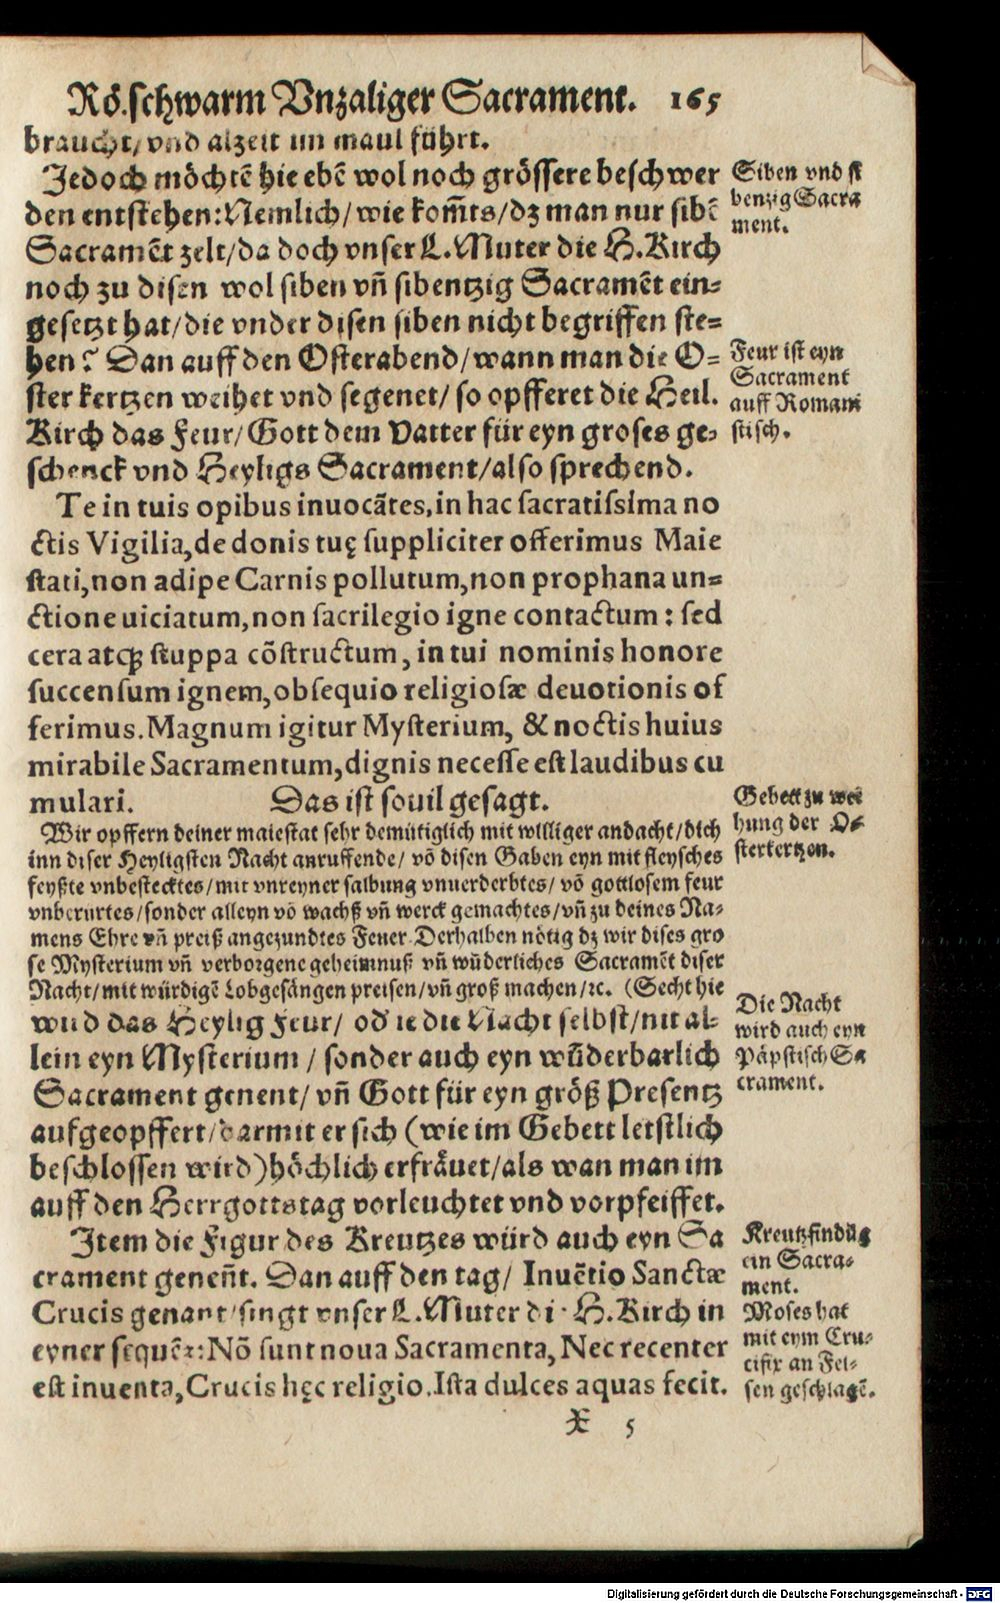 Rö.schwarm Vnzaliger Sacrament. 165
braucht/ vnd alzeit im maul führt.
Jedoch möchtē hie ebē wol noch grössere beschwer
den entstehen: Nemlich/ wie kom̃ts/ dz man nur sibē
Sacramēt zelt/ da doch vnser L. Muter die H. Kirch
noch zu disen wol siben vñ sibentzig Sacramēt ein⸗
gesetzt hat/ die vnder disen siben nicht begriffen ste⸗
hen? Dan auff den Osterabend/ wann man die O⸗
ster kertzen weihet vnd segenet/ so opfferet die Heil.
Kirch das Feur/ Gott dem Vatter für eyn groses ge⸗
schenck vnd Heyligs Sacrament/ also sprechend.
Te in tuis opibus inuocātes, in hac sacratissima no
ctis Vigilia, de donis tuę suppliciter offerimus Maie
stati, non adipe Carnis pollutum, non prophana un⸗
ctione uiciatum, non sacrilegio igne contactum: sed
cera atqꝫ stuppa cōstructum, in tui nominis honore
succensum ignem, obsequio religiosæ deuotionis of
ferimus. Magnum igitur Mysterium, & noctis huius
mirabile Sacramentum, dignis necesse est laudibus cu
mulari. Das ist souil gesagt.
Wir opffern deiner maiestat sehr demütiglich mit williger andacht/ dich
inn diser Heyligsten Nacht anruffende/ vō disen Gaben eyn mit fleysches
feyßte vnbestecktes/ mit vnreyner salbung vnuerderbtes/ vō gottlosem feur
vnberürtes/ sonder alleyn vō wachß vñ werck gemachtes/ vñ zu deines Na⸗
mens Ehre vñ preiß angezundtes Feuer. Derhalben nötig dz wir dises gro
se Mysterium vñ verborgene geheimnuß vñ wūderliches Sacramēt diser
Nacht/ mit würdigē Lobgesängen preisen/ vñ groß machen/ ꝛc. (Secht hie
würd das Heylig Feur/ oder die Nacht selbst/ nit al⸗
lein eyn Mysterium/ sonder auch eyn wūderbarlich
Sacrament genent/ vñ Gott für eyn größ Presentz
aufgeopffert/ darmit er sich (wie im Gebett letstlich
beschlossen wird) höchlich erfräuet/ als wan man im
auff den Herrgottstag vorleuchtet vnd vorpfeiffet.
Item die Figur des Kreutzes würd auch eyn Sa
crament geneñt. Dan auff den tag/ Inuētio Sanctæ
Crucis genant/ singt vnser L. Muter di H. Kirch in
eyner sequētz: Nō sunt noua Sacramenta, Nec recenter
est inuenta, Crucis hęc religio. Ista dulces aquas fecit.
X 5
Siben vnd si
bentzig Sacra
ment.
Feur ist eyn
Sacrament
auff Romani
stisch.
Gebett zu wei
hung der O⸗
sterkertzen.
Die Nacht
wird auch eyn
Päpstisch Sa
crament.
Kreutzfindūg
ein Sacra⸗
ment.
Moses hat
mit eym Cru⸗
cifix an Fel⸗
sen geschlagē.
Digitalisierung gefördert durch die Deutsche Forschungsgemeinschaft - DFG